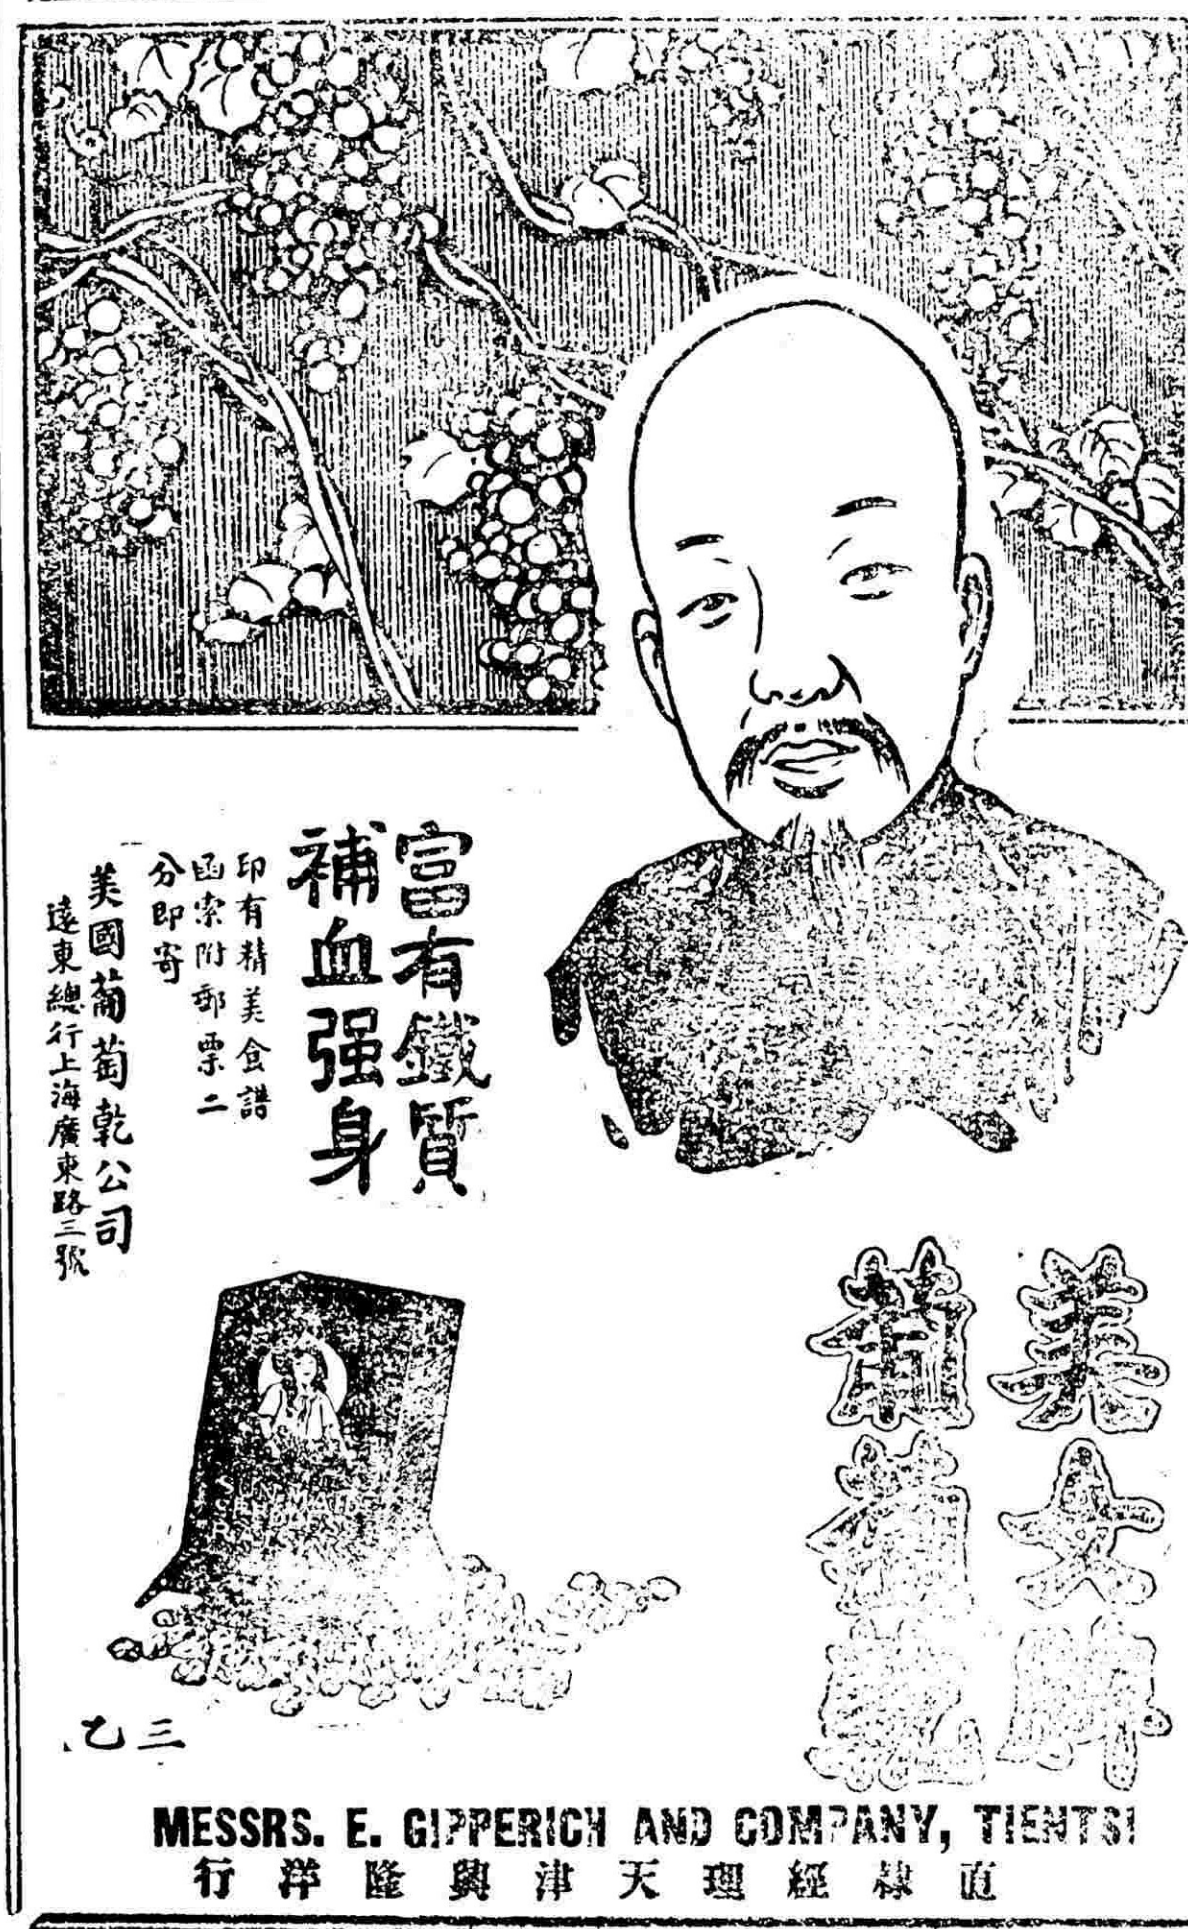 富有鐵質
補血强身
印有精美食譜
函索附郵票二
分即寄
美國葡萄乾公司
遠東總行上海廣東路三號
美女牌
葡萄乾
SUN-MAID
三乙
MESSRS. E. GIPPERICH AND COMPANY, TIENTSI
直隸經理天津興隆洋行